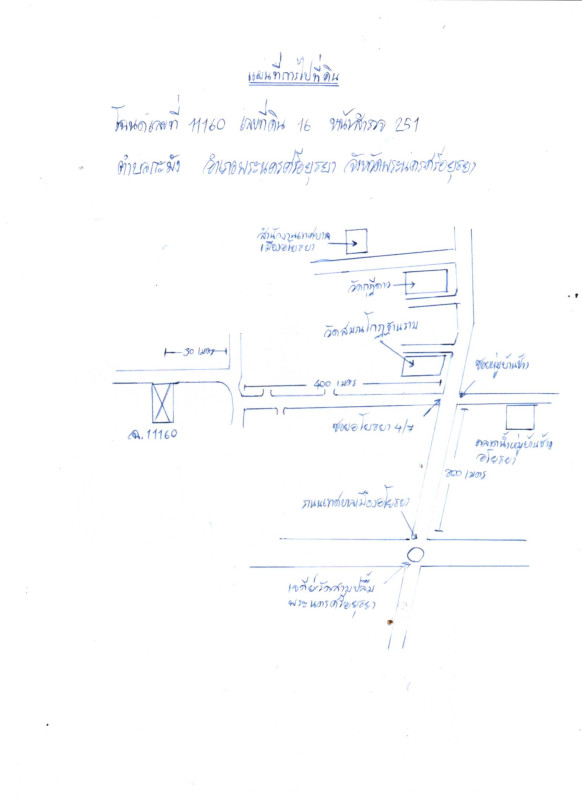 แผนที่การไปที่ดิน
โฉนดเลขที่ 11160 เลขที่ดิน 16 หน้าสำรวจ 251
ตำบลกะมัง อำเภอพระนครศรีอยุธยา จังหวัดพระนครศรีอยุธยา
สำนักงานเทศบาล
เมืองอโยธยา
วัดกุฎีดาว
วัดสมณโกฏฐาราม
ซอยหมู่บ้านช้าง
30 เมตร
400 เมตร
ฉ.11160
ซอยอโยธยา 4/7
ตลาดน้ำหมู่บ้านช้าง
อโยธยา
200 เมตร
ถนนเทศบาลเมืองอโยธยา
เจดีย์วัดสามปลื้ม
พระนครศรีอยุธยา